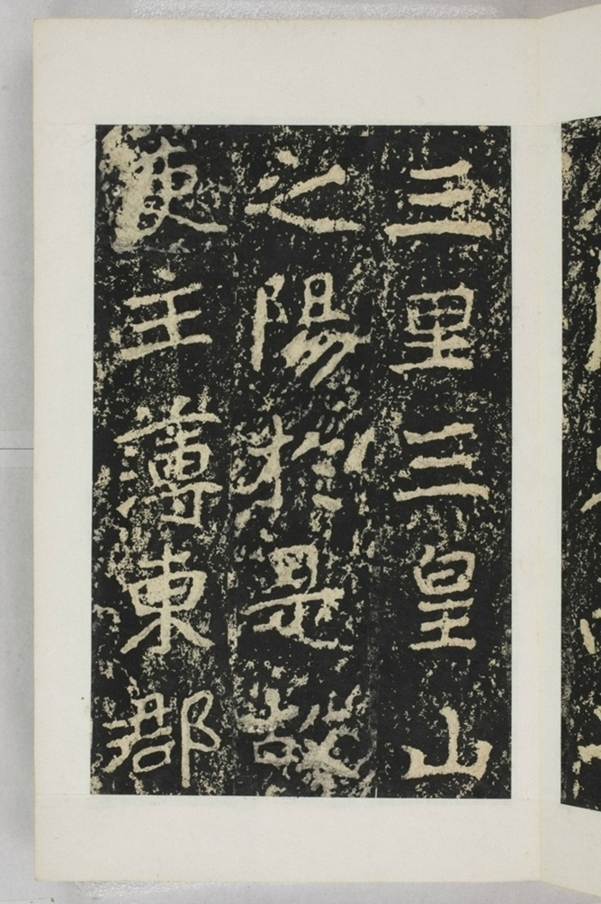 三里三皇山
之陽於是故
吏主薄東郡